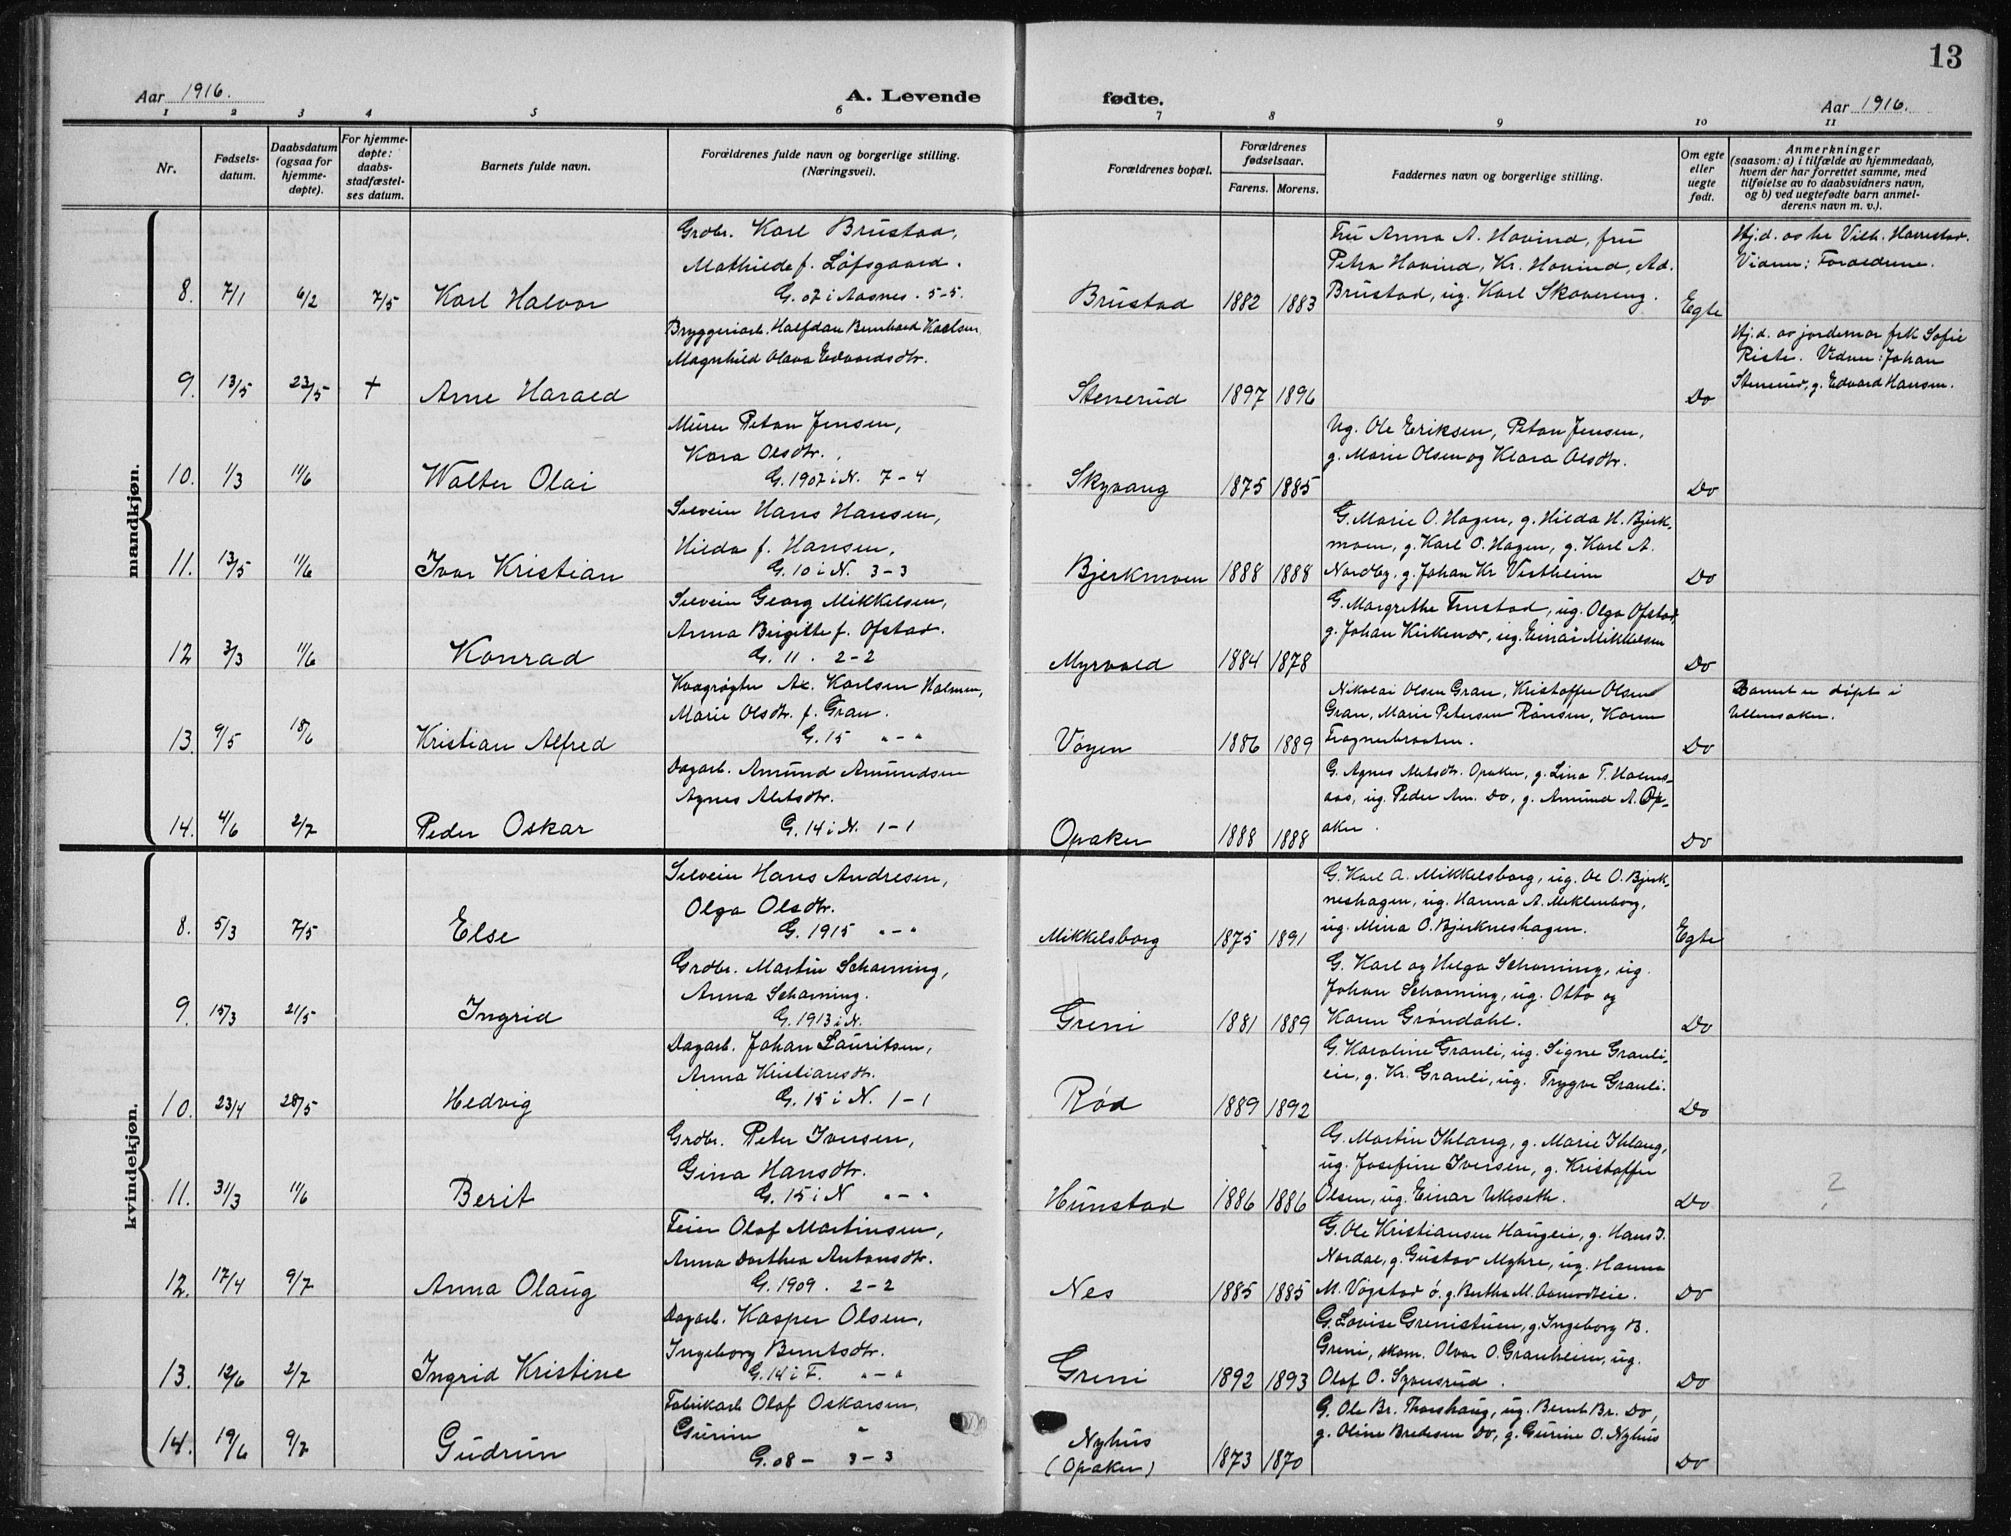 13
Aar 1916.
A. Levende
fødte.
Aar 1916.
1 2 3 4 5 6 7 8 9 10 11
Nr.
Fødsels-
datum.
Daabsdatum
(ogsaa for
hjemme-
døpte).
For hjemme-
døpte:
daabs-
stadfæstel-
ses datum.
Barnets fulde navn.
Forældrenes fulde navn og borgerlige stilling.
(Næringsvei).
Forældrenes bopæl.
Forældrenes
fødselsaar.
Farens. Morens.
Faddernes navn og borgerlige stilling.
Om egte
eller
uegte
født.
Anmerkninger
(saasom: a) i tilfælde av hjemmedaab,
hvem der har forrettet samme, med
tilføielse av to daabsvidners navn,
og b) ved uegtefødte barn anmel-
derens navn m. v.).
mandkjøn.
Grdbr. Karl Brustad,
Mathilde f. Løfsgaard.
8. 7/1 6/2 7/5 Karl Halvor G. 07 i Aasnes. 5-5.
Brustad 1882 1883
Fru Anna A. Hovind, fru
Petra Hovind, Kr. Hovind, Ad.
Brustad, ug. Karl Skovereng.
Egte
Hj.d. av hr Vilh. Harrestad.
Vidner: Forældrene.
Bryggeriarb. Halfdan Bernhard Karlsen
Magnhild Olava Edvardsdtr.
9. 13/5 23/5 + Arne Harald
Stenerud 1897 1896
Do
Hj.d. av jordemor frk Sofie
Riste. Vidner: Johan
Stenerud, g. Edvard Hansen.
Murer Petan Jensen,
Kara Olsdtr.
10. 1/3 11/6 Walter Olai G. 1907 i N. 7-4
Skyvang 1875 1885
Ug. Ole Eriksen, Petan Jensen,
g. Marie Olsen og Klara Olsdtr.
Do
Selveier Hans Hansen,
Hilda f. Hansen,
11. 13/5 11/6 Ivar Kristian G. 10 i N. 3-3
Bjerkmoen 1888 1888
G. Marie O. Hagen, g. Hilda H. Bjerk-
moen, g. Karl O. Hagen, g. Karl A.
Nordby, g. Johan Kr Vestheim
Do
Selveier Georg Mikkelsen,
Anna Birgitte f. Ofstad.
12 3/3 11/6 Konrad G. 11. 2-2
Myrvold 1884 1878
G. Margrethe Frustad, ug. Olga Ofstad,
g. Johan Kirkener, ug. Einar Mikkelsen
Do
Kvægrøgter Ax. Karlsen Holmen,
Marie Olsdtr. f. Gran.
13. 9/5 18/6 Kristian Alfred G. 15 " - "
Vogen 1886 1889
Nikolai Olsen Gran, Kristoffer Olsen
Gran, Marie Petersen Rånsen, Karen
Frognerbraaten.
Do
Barnet er døpt i
Ullensaker.
Dagarb. Amund Amundsen
Agnes Aletsdtr.
14. 4/6 2/7 Peder Oskar G. 14 i N. 1-1
Opaker 1888 1888
G. Agnes Aletsdtr. Opaker, g. Lina T. Holmes-
aas, ug. Peder Am. Do, g. Amund A. Op-
aker.
Do
kvindekjøn.
Selveier Hans Andresen,
Olga Olsdtr.
8. 5/3 7/5 Else G. 1915 " - "
Mikkelsborg 1875 1891
G. Karl A. Mikkelsborg, ug. Ol O. Bjerk-
neshagen, ug. Hanna A. Meklenborg,
ug. Mina O. Bjerkneshagen.
Egte
Grdbr. Martin Scharning,
Anna Scharning.
9. 15/3 21/5 Ingrid G. 1913 i N.
Greni 1881 1889
G. Karl og Helga Scharning, ug.
Johan Scharning, ug. Otto og
Karen Grøndahl.
Do
Dagarb. Johan Lauritsen,
Anna Kristiansdtr.
10. 23/4 28/5 Hedvig G. 15 i N. 1-1
Rød 1889 1892
G. Karoline Grauli, ug. Signe Grauli-
eie, g. Kr. Grauli, ug. Trygve Grauli.
Do
Grdbr. Peter Iversen,
Gina Hansdtr.
11. 31/3 11/6 Berit G. 15 i N " - "
Hunstad 1886 1886
G. Martin Ihlang, g. Marie Ihlang,
ug. Josefine Iversen, g. Kristoffer
Olsen, ug. Einar Ukeseth.
Do
2
Feier Olaf Martinsen,
Anna Dorthea Antonsdtr.
12. 17/4 9/7 Anna Olaug G. 1909. 2-2
Nes 1885 1885
G. Ole Kristiansen Haugeie, g. Hans I.
Nordal, g. Gustav Myhre, ug. Hanna
M. Vogstad ø. g. Bertha M. Aamodteie.
Do
Dagarb. Kasper Olsen,
Ingeborg Berntsdtr.
13. 12/6 2/7 Ingrid Kristine G. 14 i F. " - "
Greni 1892 1893
G. Lovise Grenistuen, g. Ingeborg B.
Greni, skom. Olvar O. Granheim, ug.
Olaf O.
Do
Fabrikarb Olaf Oskarsen,
Gurine "
14. 19/6 9/7 Gudrun G. 08 - 3-3
Nyhus
(Opaker) 1873 1870
G. Ole Br. Thorshaug, ug. Bernt Br. Do,
g. Oline Bredesen Do, g. Gurine O. Nyhus
Do